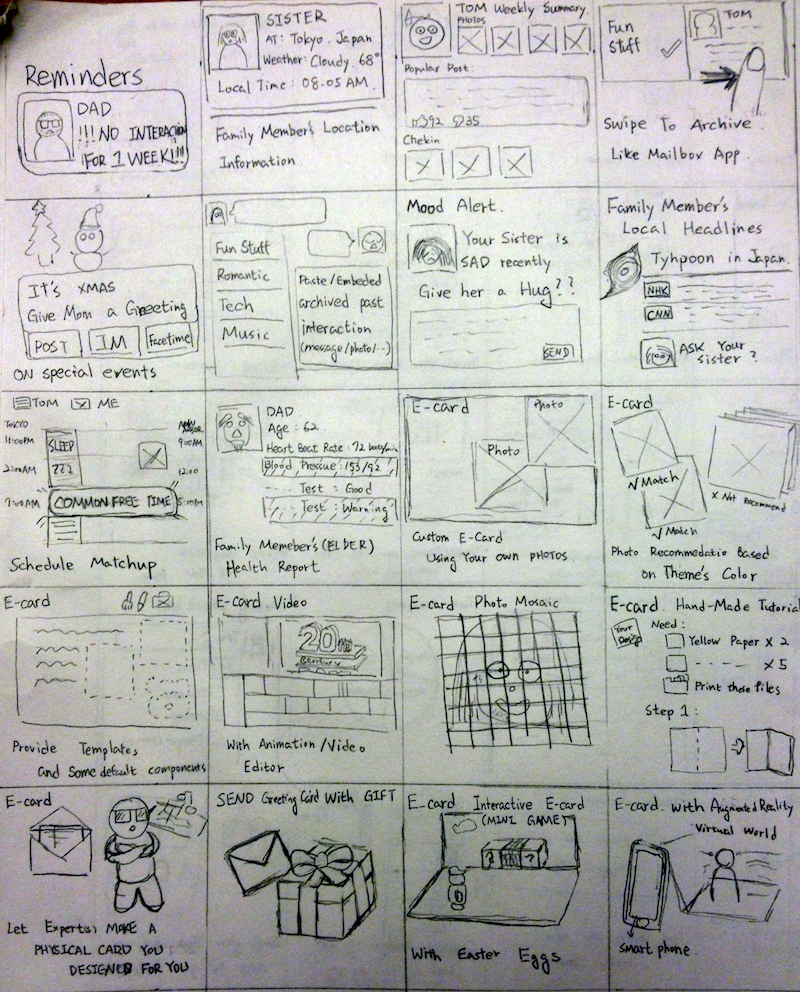 Reminders
DAD
!!! NO INTERACION
FOR 1 WEEK!!!
SISTER
AT: Tokyo, Japan
Weather: Cloudy. 68°
Local Time: 08:05 AM.
Family Member's Location
Information
TOM Weekly Summary
PHOTOS
Popular Post:
92 35
Chekin
Fun
Stuff
TOM
Swipe To Archive.
Like Mailbox App.
It's XMAS
Give Mom a Greeting
POST
IM
Facetime
ON special events
Fun Stuff
Romantic
Tech
Music
Paste/Embeded
archived past
interaction
(message/photo/...)
Mood Alert.
Your Sister is
SAD recently
Give her a Hug??
SEND
Family Member's
Local Headlines
Tyhpoon in Japan.
NHK
CNN
ASK Your
sister?
TOM
ME
TOKYO
11:00PM
9:00AM
SLEEP
ZZZ
2:00AM
12:00
7:00AM
COMMON FREE TIME
5:00PM
Schedule Matchup
DAD
Age: 62
Heart Beat Rate: 72 beats/min
Blood Pressue: 153/92
... Test: Good
... Test: Warning
Family Memeber's (ELDER)
Health Report
E-card
Photo
Photo
Custom E-Card
Using Your own PHOTOS
E-card
√ Match
√ Match
x Not Recommend
Photo Recommedatio Based
on Theme's Color
E-card
Provide Templates
and Some default components
E-card Video
20th
Century
With Animation/Video
Editor
E-card Photo Mosaic
E-card. Hand-Made Tutorial
Your Design
Need:
Yellow Paper x 2
- - - - x 5
Print these files
Step 1:
E-card
Let Expert(s) MAKE A
PHYSICAL CARD YOU
DESIGNED FOR YOU
SEND Greeting Card With GIFT
E-card Interactive E-card
(MINI GAME)
?
?
With Easter Eggs.
E-card. with Augmented Reality
Virtual World
smart phone.